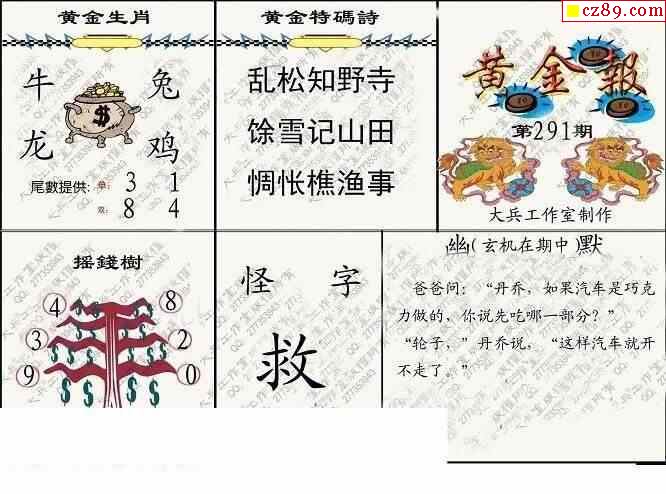 黄金生肖
牛 兔
$
龙 鸡
尾數提供: 单: 3 1
双: 8 4
黄金特碼詩
乱松知野寺
馀雪记山田
惆怅樵渔事
cz89.com
黄金報
第291期
大兵工作室制作
摇錢樹
4 8
3 2
9 0
怪 字
救
幽(玄机在期中)默
爸爸问：“丹乔，如果汽车是巧克
力做的，你说先吃哪一部分？”
“轮子，”丹乔说，“这样汽车就开
不走了。”